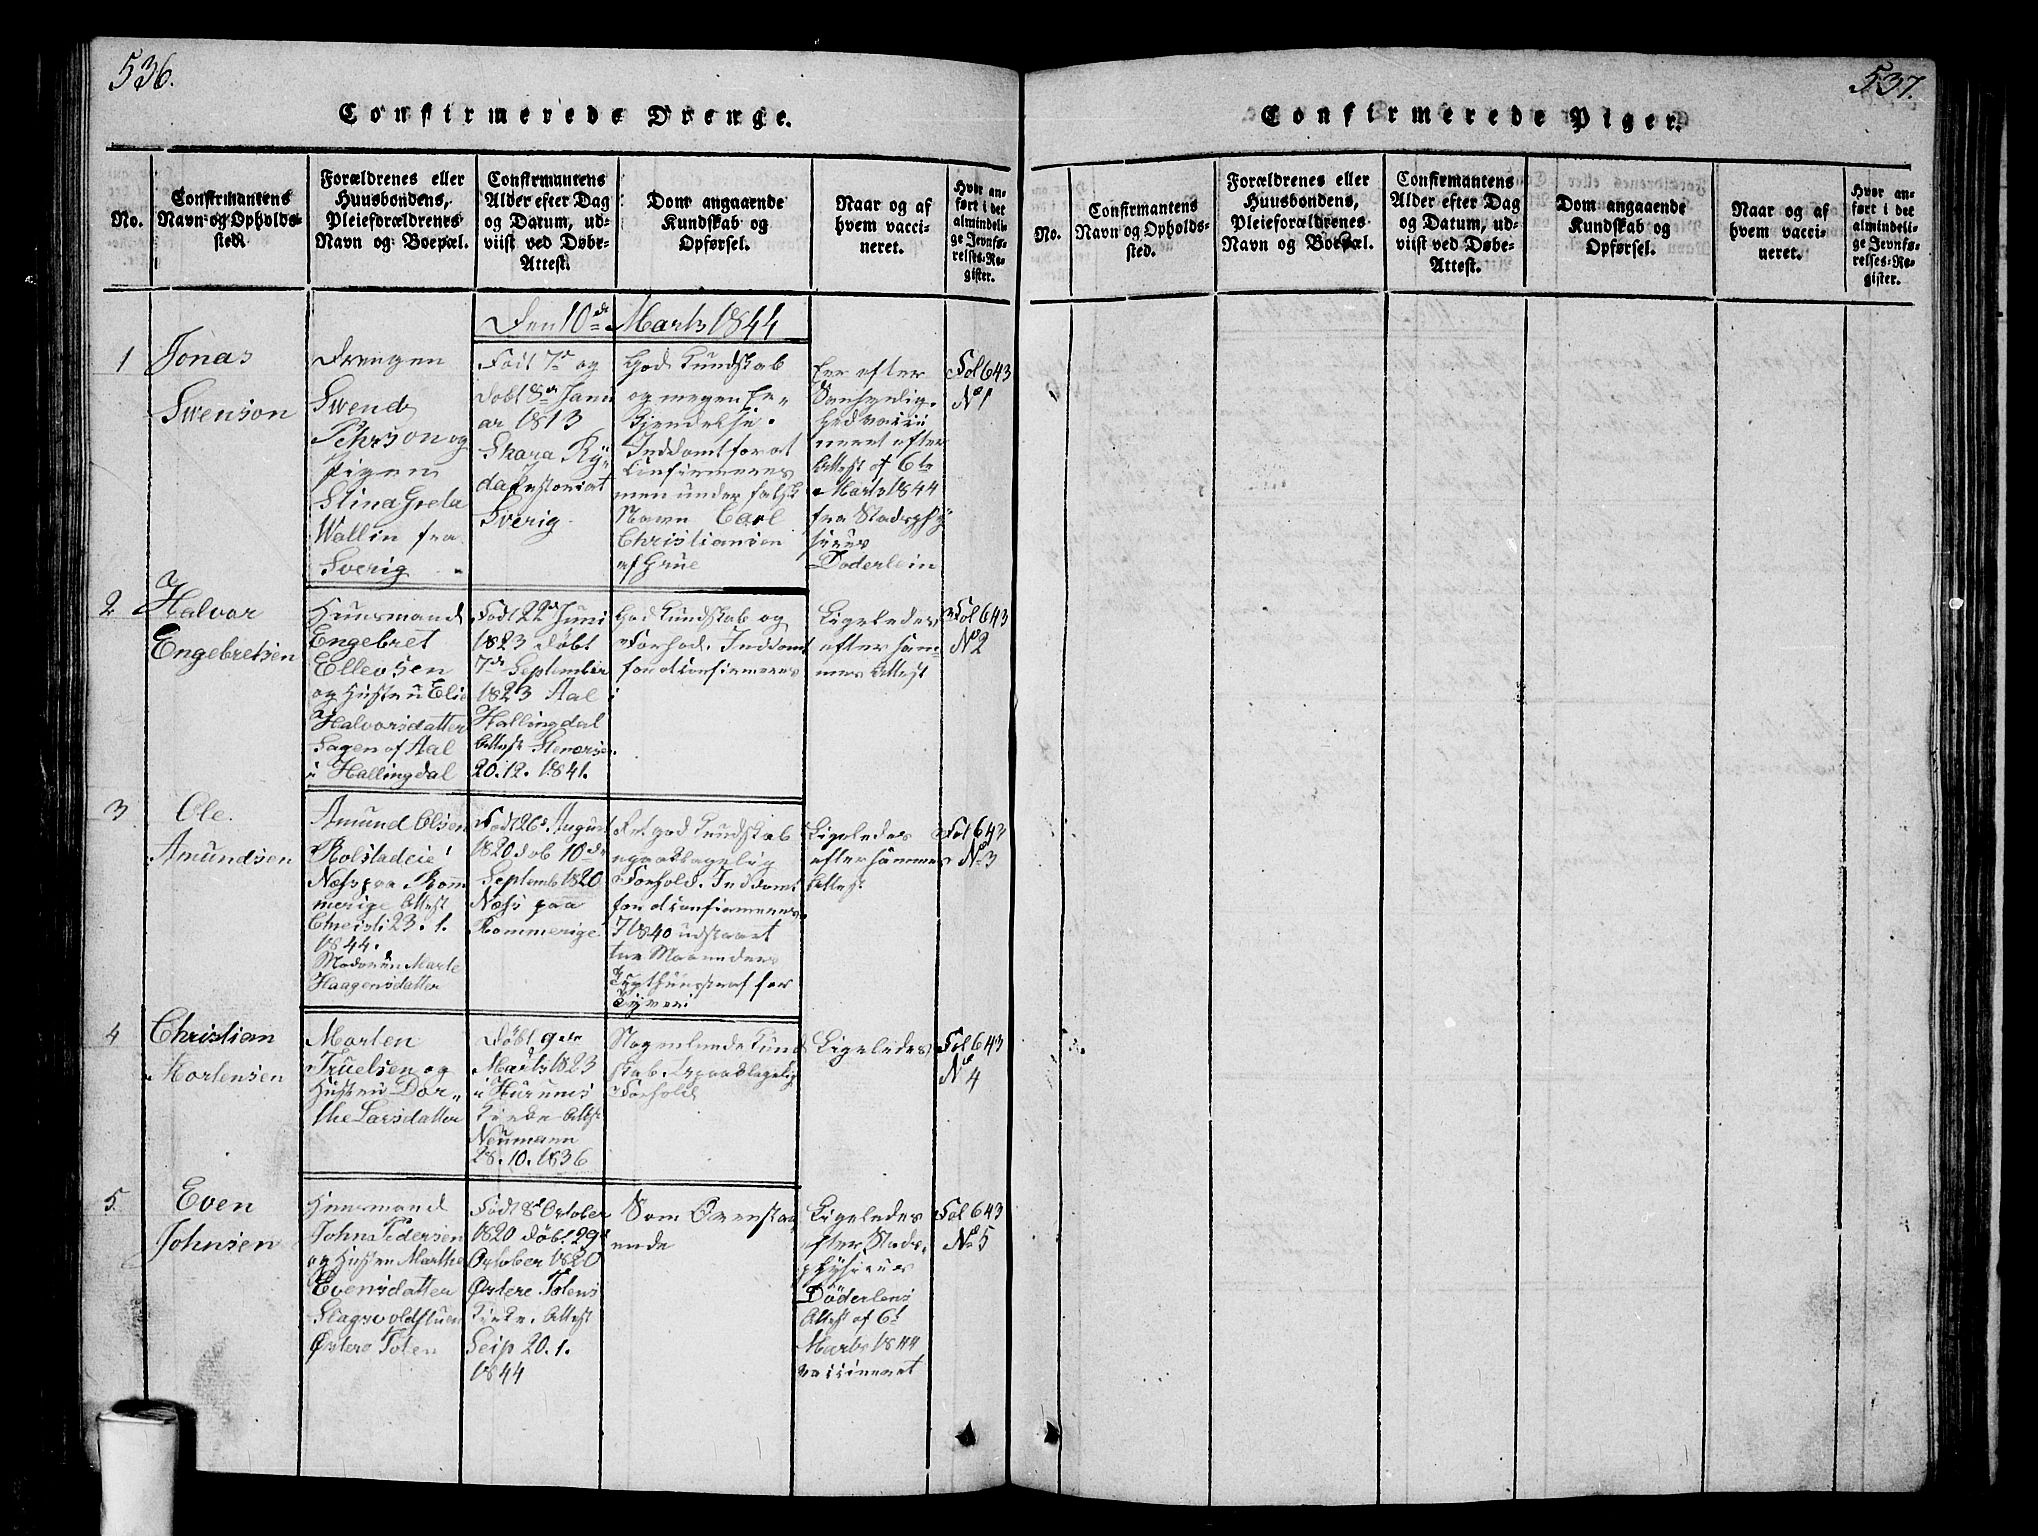 536.
Confirmerede Drenge.
No.
Confirmantens
Navn og Opholds-
sted.
Forældrenes eller
Huusbondens,
Pleieforældrenes
Navn og Boepæl.
Confirmantens
Alder efter Dag
og Datum, ud-
viist ved Døbe-
Attest.
Dom angaaende
Kundskab og
Opførsel.
Naar og af
hvem vacci-
neret.
Hvor an-
ført i det
almindeli-
ge Jevnfø-
relses-Re-
gister.
Den 10de Marts 1844
1
Jonas
Swenson
Drengen
Swend
Pehrson og
Pigen
Stina Greta
Wallin fra
Sverig
Født 7de og
døbt 8de Janu
ar 1813
Skara Ry
da Pastoriat
Sverig
God Kundskab
og megen Er-
kjendelse.
Inddømt for at
Confirmeres
men under falsk
Navn Carl
Christiansen
af Grue
Er efter
Sandsynlig-
hed vacci
neret efter
Attest af 6te
Marts 1844
fra Stadsphy
sicus
Döderlein
Fol 643
No 1
2
Halvor
Engebretsen
Huusmand
Engebret
Ellevsen
og Hustru Elie
Halvorsdatter
Sagen af Aal
i Hallingdal
Født 22de Juni
1823 døbt
7de September
1823 Aal
Hallingdal
Attest Stenersen
20.12.1841.
God Kundskab og
Forhold. Inddømt
for at confirmeres
Ligeledes
efter sam-
mes Attest
Fol 643
No 2
3
Ole
Amundsen
Amund Olsen
Rolstadeie
Næss paa Rom
merige Attest
Christi 23.1.
1844.
Moderen Marte
Haagensdatter
Født 26de August
1820 døb 10de
Septemb 1820
Næss paa
Rommerige
Ret god Kundskab
upaaklagelig
Forhold. Inddømt
for at confirmeres.
I 1840 udstaaet
tre Maaneders
Tugthuusstraf for
Tyveri
Ligeledes
efter sammes
Attest
Fol 643
No 3
4
Christian
Mortensen
Morten
Truelsen og
Hustru Dor-
the Larsdatter
Døbt 9de
Marts 1823
i Hurums
Kirke Attst
Neumann
28.10.1836
Nogenlunde Kund
skab. Upaaklagelig
Forhold
Ligeledes
Fol 643
No 4
5.
Even
Johnsen
Huusmand
John Pedersen
og Hustru Marthe
Evensdatter
Slagsvoldstuen
Østere Toten
Født 8de October
1820 døbt 29de
October 1820
Østere Totens
Kirke. Attest
Seip 20.1.
1844
Som Ovenstaa
ende
Ligeledes
efter Stads-
physicus
Döderleins
Attest af 6te
Marts 1844
vaccineret
Fol 643
No 5
537.
Confirmerede Piger.
No.
Confirmantens
Navn og Opholds-
sted.
Forældrenes eller
Huusbondens,
Pleieforældrenes
Navn og Boepæl.
Confirmantens
Alder efter Dag
og Datum, ud-
viist ved Døbe-
Attest.
Dom angaaende
Kundskab og
Opførsel.
Naar og af
hvem vacci-
neret.
Hvor an-
ført i det
almindeli-
ge Jevnfø-
relses-Re-
gister.